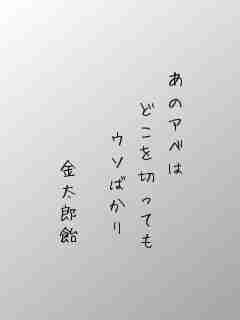 あのアベは
どこを切っても
ウソばかり
金太郎飴